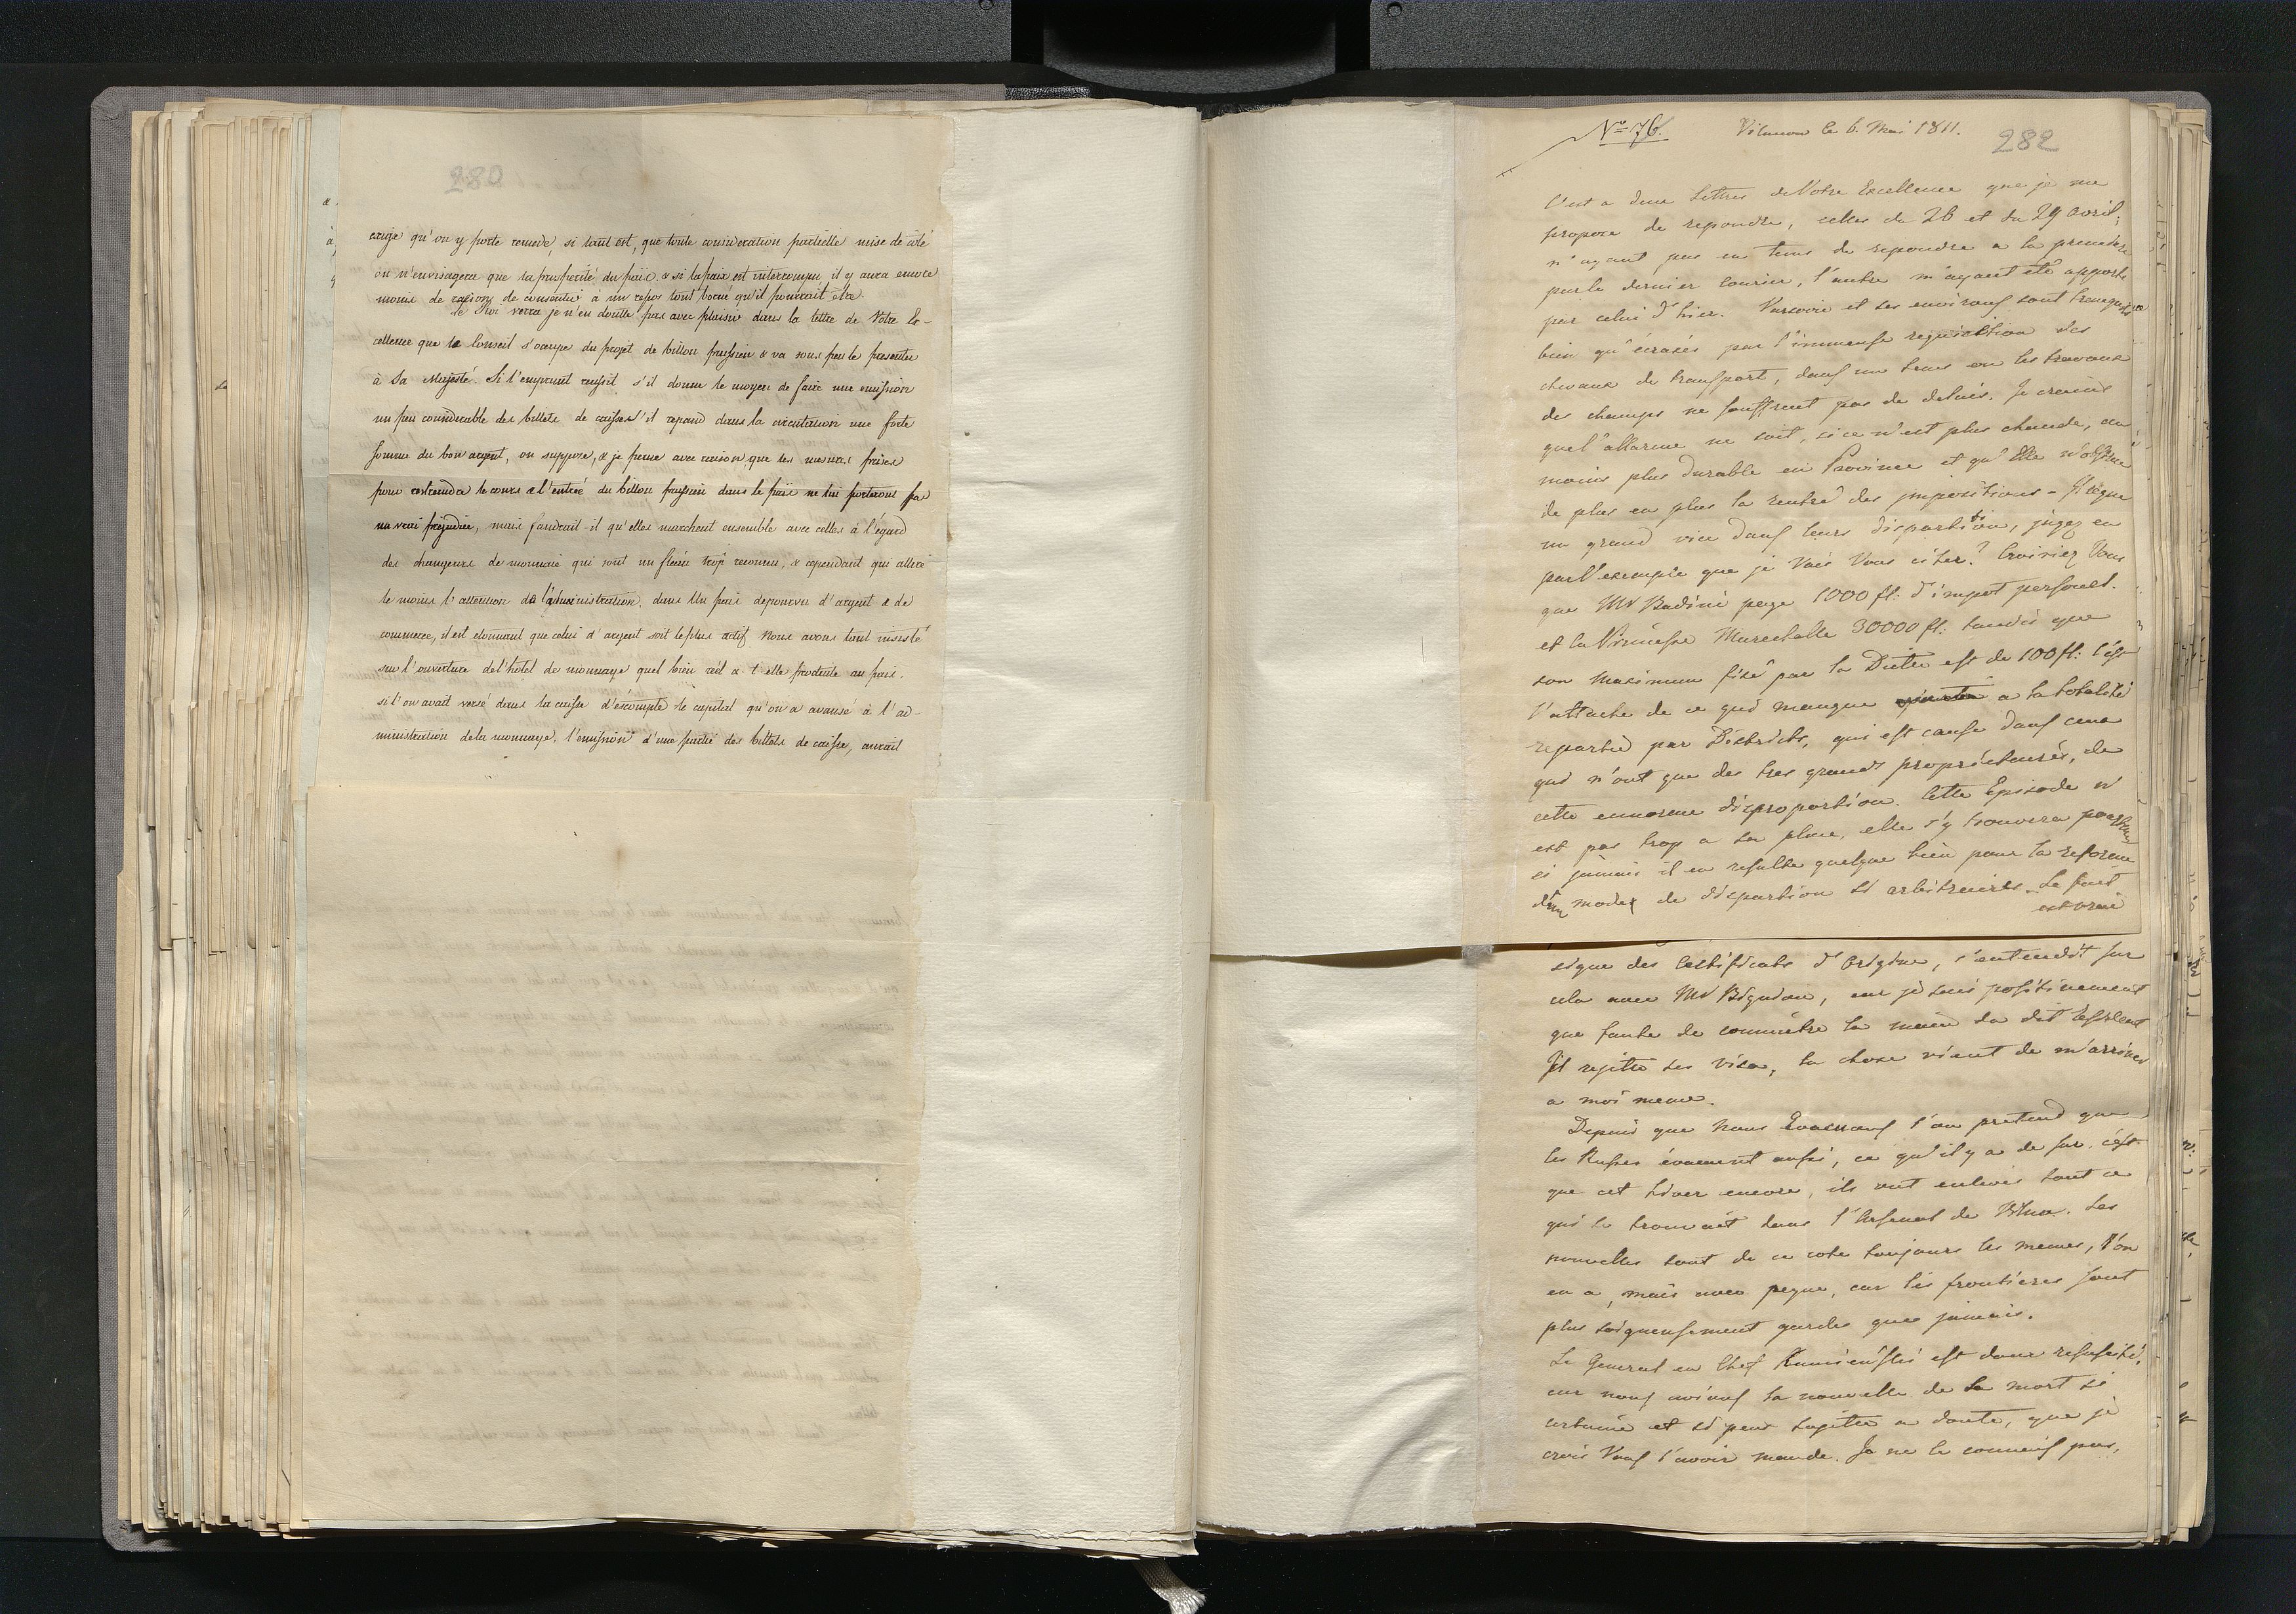 280
exige qu'on y porte remede, si tant est, que toute consideration partielle mise de coté
on n'envisagera que la prosperité du païs & si la paix est interrompu, il y aura encore
moins de raisons de consentir à un repos tout borné qu'il pourrait etre.
Le Roi verra je n'en doutte pas avec plaisir dans la lettre de Votre Ex-
cellence que le Conseil s'occupe du projet de billon prussien & va sous peu le presenter
à Sa Majesté. Si l'emprunt reussit s'il donne le moyen de faire une emission
un peu considerable des billets de caisses s'il repand dans la circulation une forte
somme du bon argent, on suppose, & je pense avec raison, que les mesures prises
pour restreindre le cours & l'entrée du billon prussien dans le païs ne lui porterons pas
un vrai prejudice, mais faudrait-il qu'elles marchent ensemble avec celles à l'égard
des changeurs de monnaie qui sont un fleau trop reconnu, & cependant qui attire
le moins l'attention de l'administration. dans un païs depourvu d'argent & de
commerce, il est etonnant que celui d'argent soit le plus actif. Nous avons tant insisté
sur l'ouverture de l'hotel de monnaye quel bien réel a-t-elle produite au païs.
si l'on avait versé dans la caisse d'éscompte le capital qu'on a avansé à l'ad-
ministration de la monnaye, l'emission d'une partie des billets de caisse, aurait
No 76.
Vilanow le 6. Mai 1811.
282
C'est a deux Lettres de Votre Excellence que je me
propose de repondre, celles du 26 et du 29 avril;
n'ayant pas eu tems de repondre a la premiere
par le dernier Courier, l'autre m'ayant été apporté
par celui d'hier. Varsovie et ses environs sont tranquiles
bien qu'écrasés par l'immense requisition des
chevaux de transport, dans un tems ou les travaux
des champs ne souffrent pas de delais. Je crains
que l'allarme ne soit, si ce n'est plus chaude, au
moins plus durable en Province et qu'Elle n'obstrue
de plus en plus la rentré des impositions - Il règne
un grand vice dans leurs dispartition, jugez en
par l'exemple que je vais Vous citer? Croiriez Vous
que Mr Badini paye 1000 fl: d'impot personel.
et la Princesse Marechalle 30000 fl: tandis que
son Maximum fixé par la Diette est de 100 fl: c'est
l'attache de ce qui manque a la totalité
repartie par Districts, qui est cause dans ceux
qui n'ont que des tres grands propriétaires, de
cette ennorme disproportion. Cette Episode n'
est pas trop a sa place, elle s'y trouvera pourtant
si jamais il en resulte quelque bien pour la reforme
d'un mode de dispartion si arbitraires. Le fait
est vrai
signe des Certificats d'Origine, s'entendit sur
cela avec Mr Bignon, car je sais positivement
que faute de connaitre la main du dit President
Il rejette ses visa, la chose vient de m'arriver
a moi meme.
Depuis que Nous Evacuons l'on pretend que
les Russes évacuent aussi, ce qu'il y a de sur c'est
que cet hiver encore, ils ont enlevés tout ce
qui se trouvait dans l'Arsenal de Vilna. Les
nouvelles sont de ce coté toujours les memes, l'on
en a, mais avec peyne, car les frontieres sont
plus soigneusement gardés que jamais.
Le General en Chef Kamienski est donc resuscité,
car nous avions la nouvelle de sa mort si
certaine et si peu sujette a doute, que je
crois Vous l'avoir mandé. Je ne le connais pas,